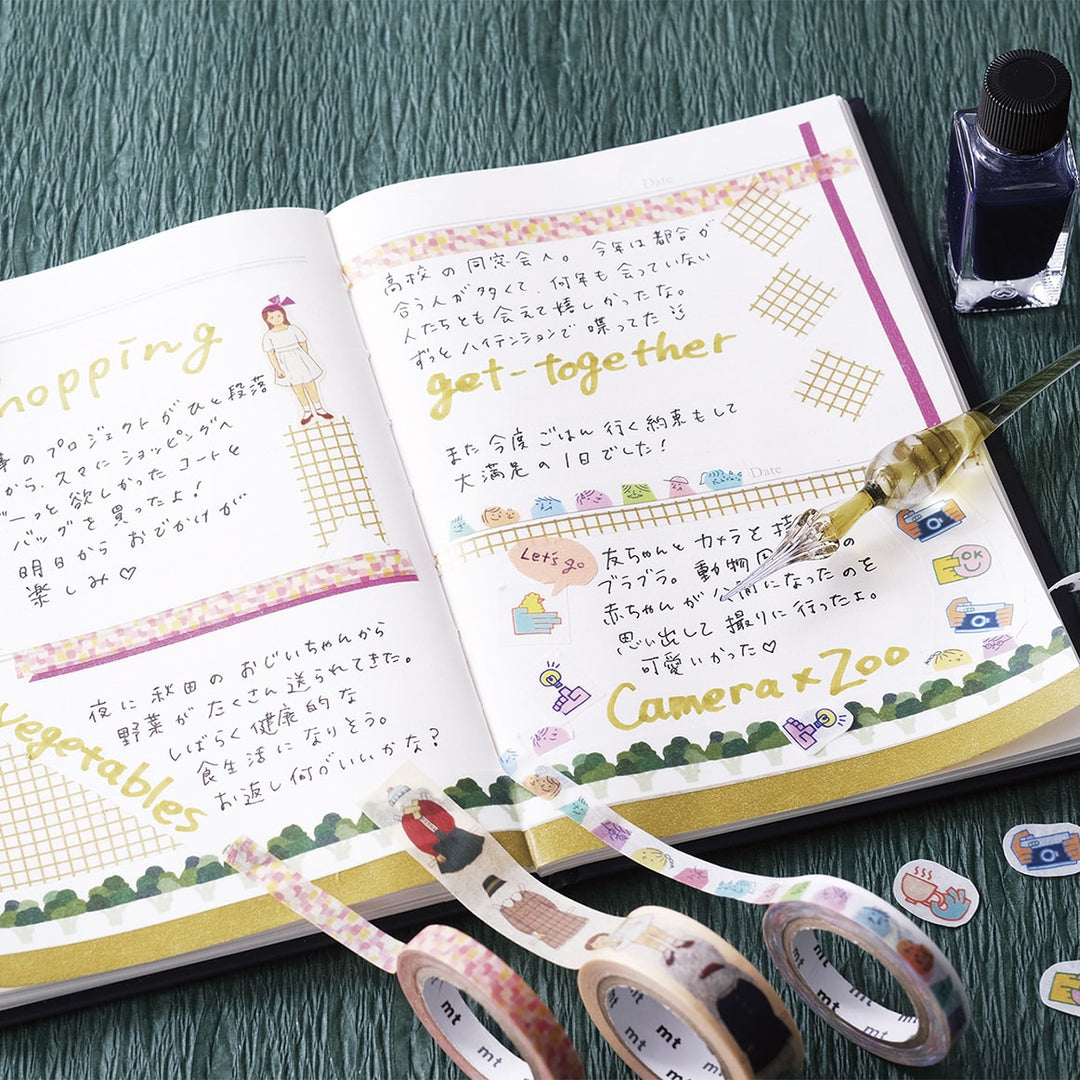 hopping
のプロジェクトがひと段落
から、久々にショッピングへ
ずーっと欲しかったコートと
バッグを買ったよ!
明日からおでかけが
楽しみ♡
夜に秋田のおじいちゃんから
野菜がたくさん送られてきた。
しばらく健康的な
食生活になりそう。
お返し何がいいかな?
vegetables
Date
高校の同窓会へ。今年は都合が
合う人が多くて、何年も会っていない
人たちとも会えて嬉しかったな。
ずっとハイテンションで喋ってた
get-together
また今度ごはん行く約束もして
大満足の1日でした!
Date
Let's go
友ちゃんとカメラと持
ブラブラ。動物園の
赤ちゃんが公開になったのを
思い出して撮りに行ったよ。
可愛いかった♡
Camera×Zoo
OK
mt
mt
mt
mt
mt
mt
mt